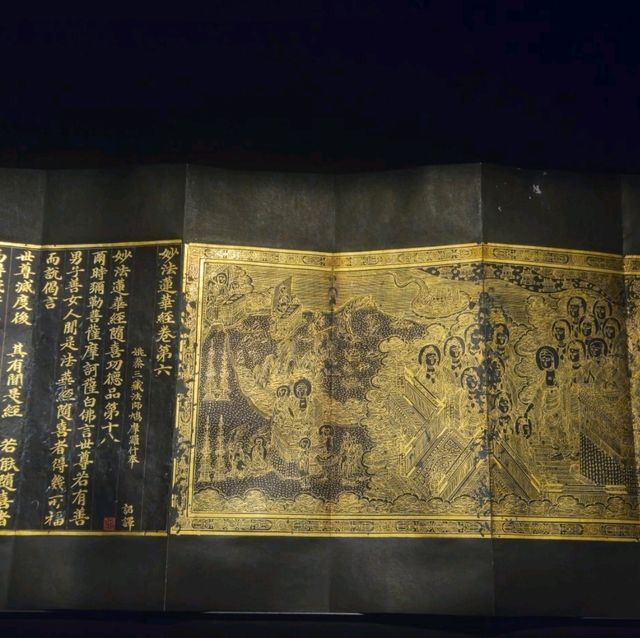 妙法蓮華經卷第六
姚秦三藏法師鳩摩羅什奉 詔譯
妙法蓮華經隨喜功德品第十八
爾時彌勒菩薩摩訶薩白佛言世尊若有善
男子善女人聞是法華經隨喜者得幾所福
而說偈言
世尊滅度後 其有聞是經 若能隨喜者